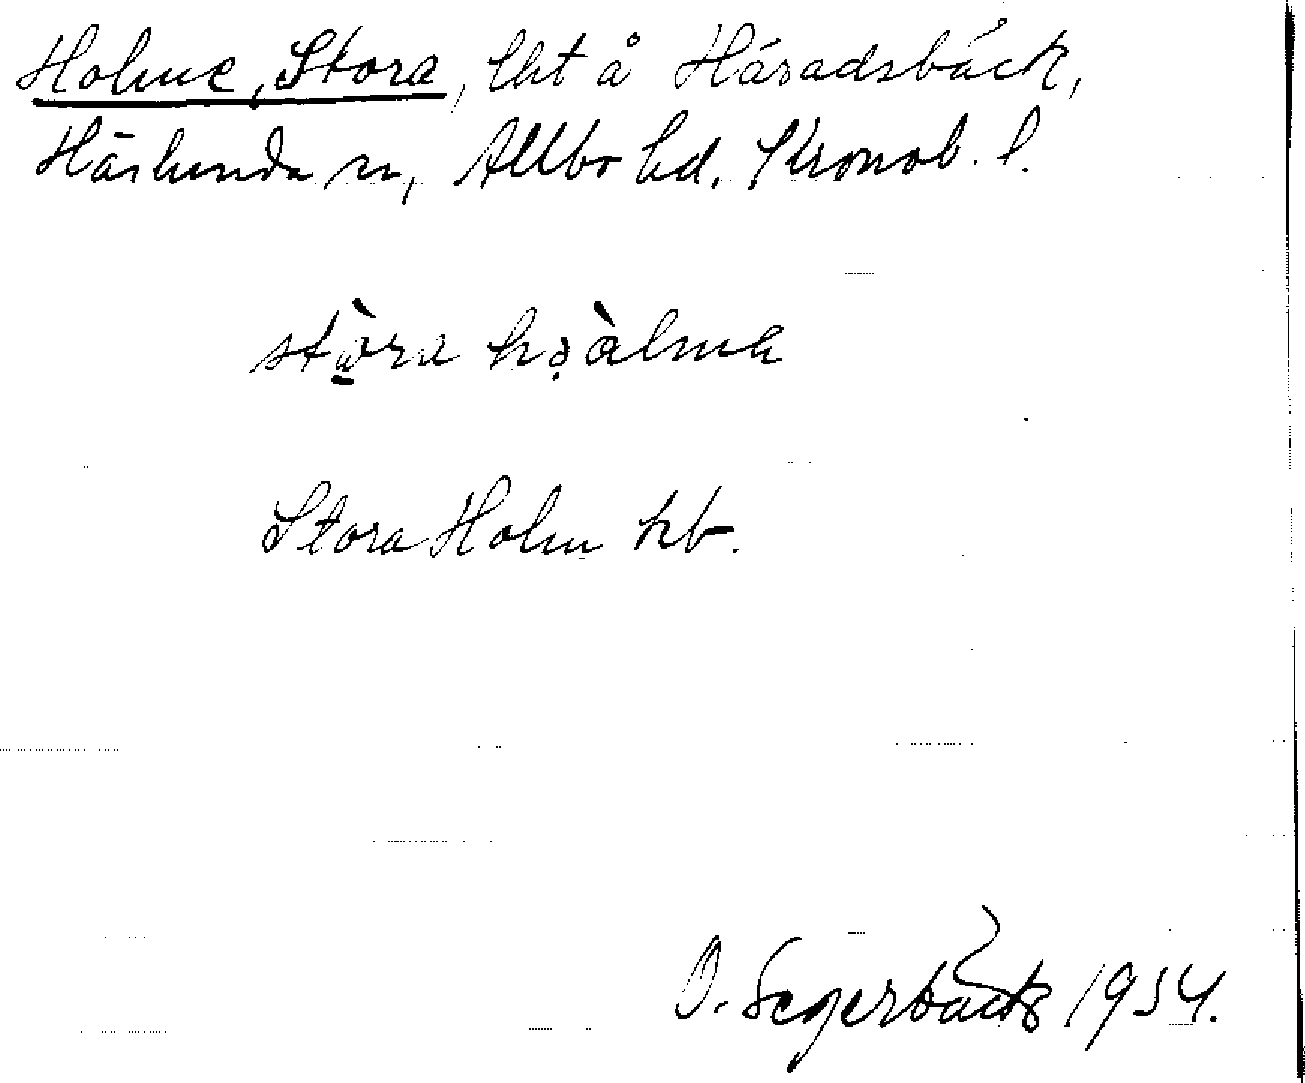 Holme, Stora, lht å Häradsbäck,
Härlunda sn, Allbo hd. Kronob. l.
stòra hoàlma
Stora Holm kb.
O. Segerbäck 1954.